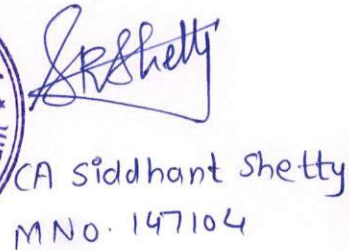 SRShetty
CA Siddhant Shetty
MNo. 147104